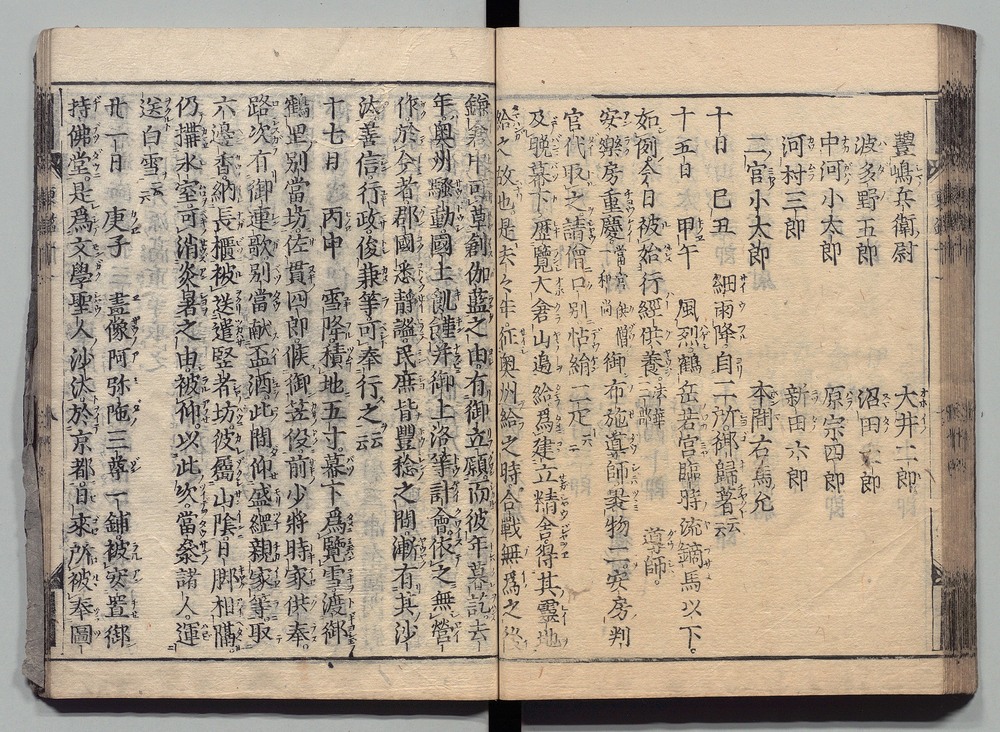 豐嶋兵衛尉 大井二郎
波多野五郎 沼田太郎
中河小太郎 原宗四郎
河村三郎 新田六郎
二宮小太郎 本間右馬允
十日 己丑 細雨降自二所御歸着云云
十五日 甲午 風烈鶴岳若宮臨時流鏑馬以下
如例今日被始行經供養 法華二部 導師
安樂房重慶 當宮供僧和尚 御布施導師裹物二安房判
官代取之請僧口別帖絹二疋云云
及晩幕下歴覽大倉山邊給爲建立精舎得其靈地
給之故也是去々年征奥州給之時合戰無爲之後
鎌倉中可草創伽藍之由有御立願而彼年暮訖去
年奥州騒動國土飢饉并御上洛等計會依之無營
作於今者郡國悉静謐民庶皆豐稔之間漸有其沙
汰善信行政俊兼等可奉行之云云
十七日 丙申 雪降積地五寸幕下爲覽雪渡御
鶴岳別當坊佐貫四郎候御笠役前少將時家供奉
路次有御連歌別當献盃酒此間仰盛綱親家等取
六邊香納長櫃被送遣竪者坊彼屬山陰日脚相隔
仍搆氷室可消炎暑之由被仰以此次當參諸人運
送白雪云云
廿一日 庚子 畫像阿弥陁三尊一鋪被安置御
持佛堂是爲文學聖人沙汰於京都日来所被奉圖